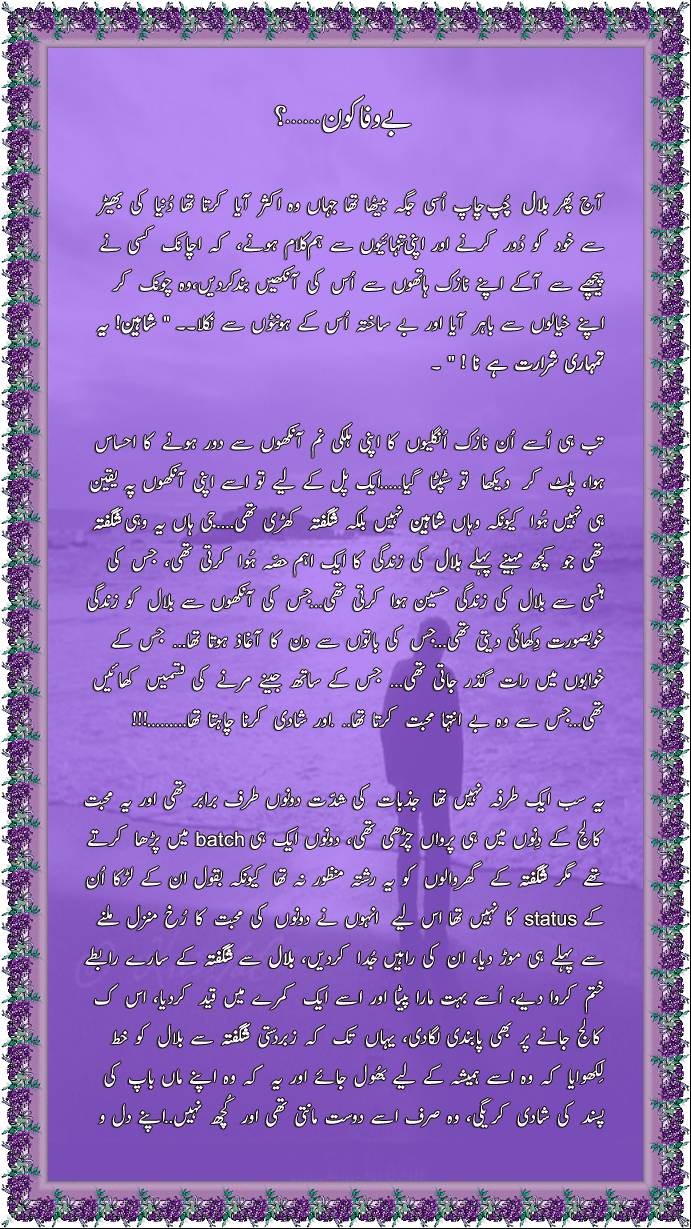 بے وفا کون......؟
آج پھر بلال چُپ چاپ اُسی جگہ بیٹھا تھا جہاں وہ اکثر آیا کرتا تھا دُنیا کی بھیڑ
سے خود کو دُور کرنے اور اپنی تنہائیوں سے ہم کلام ہونے، کہ اچانک کسی نے
پیچھے سے آکے اپنے نازک ہاتھوں سے اُس کی آنکھیں بند کردیں، وہ چونک کر
اپنے خیالوں سے باہر آیا اور بے ساختہ اُس کے ہونٹوں سے نکلا۔۔ " شاہین! یہ
تمہاری شرارت ہے نا ! " ۔
تب ہی اُسے اُن نازک اُنگلیوں کا اپنی ہلکی نم آنکھوں سے دور ہونے کا احساس
ہوا، پلٹ کر دیکھا تو سٹپٹا گیا.....ایک پل کے لیے تو اسے اپنی آنکھوں پہ یقین
ہی نہیں ہُوا کیونکہ وہاں شاہین نہیں بلکہ شگفتہ کھڑی تھی....جی ہاں یہ وہی شگفتہ
تھی جو کچھ مہینے پہلے بلال کی زندگی کا ایک اہم حصّہ ہُوا کرتی تھی، جس کی
ہنسی سے بلال کی زندگی حسین ہوا کرتی تھی...جس کی آنکھوں سے بلال کو زندگی
خوبصورت دِکھائی دیتی تھی...جس کی باتوں سے دن کا آغاز ہوتا تھا... جس کے
خوابوں میں رات گذر جاتی تھی... جس کے ساتھ جینے مرنے کی قسمیں کھائیں
تھی...جس سے وہ بے انتہا محبت کرتا تھا.. .اور شادی کرنا چاہتا تھا.........!!!
یہ سب ایک طرفہ نہیں تھا جذبات کی شدّت دونوں طرف برابر تھی اور یہ محبت
کالج کے دِنوں میں ہی پرواں چڑھی تھی، دونوں ایک ہی batch میں پڑھا کرتے
تھے مگر شگفتہ کے گھروالوں کو یہ رشتہ منظور نہ تھا کیونکہ بقول ان کے لڑکا اُن
کے status کا نہیں تھا اس لیے انہوں نے دونوں کی محبت کا رُخ منزل ملنے
سے پہلے ہی موڑ دیا، ان کی راہیں جُدا کردیں، بلال سے شگفتہ کے سارے رابطے
ختم کروا دیے، اُسے بہت مارا پیٹا اور اسے ایک کمرے میں قید کردیا، اس ک
کالج جانے پر بھی پابندی لگادی، یہاں تک کہ زبردستی شگفتہ سے بلال کو خط
لِکھوایا کہ وہ اسے ہمیشہ کے لیے بھُول جائے اور یہ کہ وہ اپنے ماں باپ کی
پسند کی شادی کریگی، وہ صرف اسے دوست مانتی تھی اور کُچھ نہیں..اپنے دل و